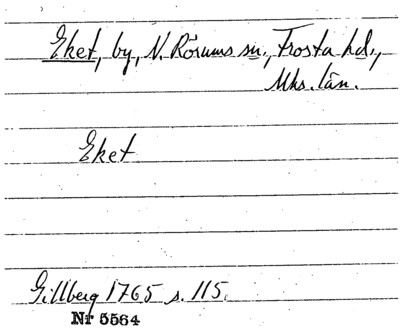 Eket, by, N. Rörums sn., Frosta hd.,
Mhs. län.
Eket
Gillberg 1765 s. 115.
Nr 5564